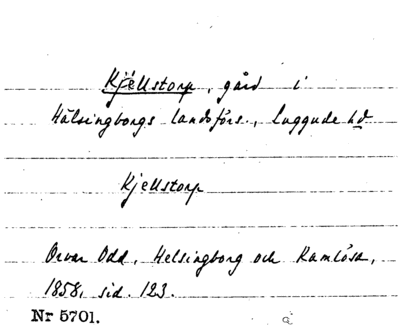 Kjellstorp, gård i
Hälsingborgs landsförs., Luggude hd
Kjellstorp
Orvar Odd, Helsingborg och Ramlösa,
1858, sid. 123.
Nr 5701.